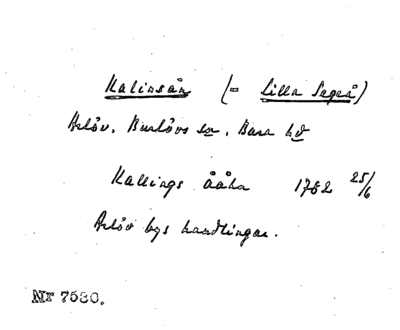 Kalinsån (= Lilla Segeå)
Arlöv, Burlövs sn, Bara hd
Kallings ååhn 1752 25/6
Arlöv bys handlingar.
Nr 7530.